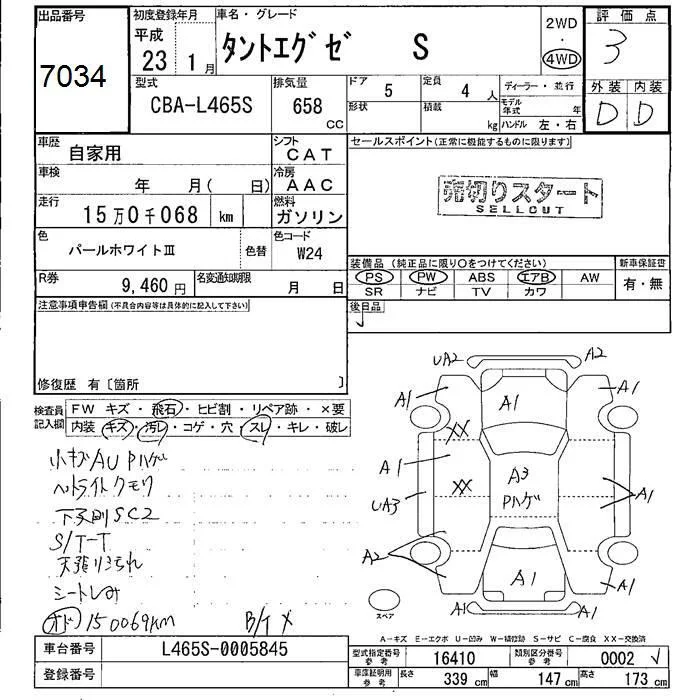 出品番号
7034
初度登録年月
平成
23 1 月
車名・グレード
タントエグゼ S
2WD
・
4WD
評価点
3
外装 内装
D D
型式
CBA-L465S
排気量
658
CC
ドア
5
定員
4 人
形状
積載
kg
ディーラー・並行
モデル年式 年
ハンドル 左・右
車歴
自家用
シフト
CAT
車検
年 月( 日)
冷房
AAC
走行
15万0千068 km
燃料
ガソリン
色
パールホワイトⅢ
色替
色コード
W24
R券
9,460 円
名変通知期限
月 日
セールスポイント(正常に機能するものに限ります)
売切りスタート
SELLOUT
装備品(純正品に限り○をつけてください)
新車保証書
PS PW ABS エアB AW
SR ナビ TV カワ
有・無
後日品
注意事項申告欄(不具合内容等は具体的に記入して下さい)
修復歴 有〔箇所 〕
検査員
記入欄
FW キズ・飛石・ヒビ割・リペア跡・×要
内装 キズ・汚レ・コゲ・穴・スレ・キレ・破レ
小キズAU Pハゲ
ヘッドライトクモリ
下廻りSC2
S/T-T
天張りよごれ
シートしみ
オド 150069km
B/T メ
UA2
A2
A1
A1
A1
XX
A1
A3
Pハゲ
XX
UA3
A1
A2
A1
A1
A1
A1
スペア
A-キズ E-エクボ U-凹み W-補修跡 S-サビ C-腐食 XX-交換済
車台番号
L465S-0005845
登録番号
型式指定番号
参考
16410
類別区分番号
参考
0002
車庫証明用
参考
長さ
339 cm
幅
147 cm
高さ
173 cm